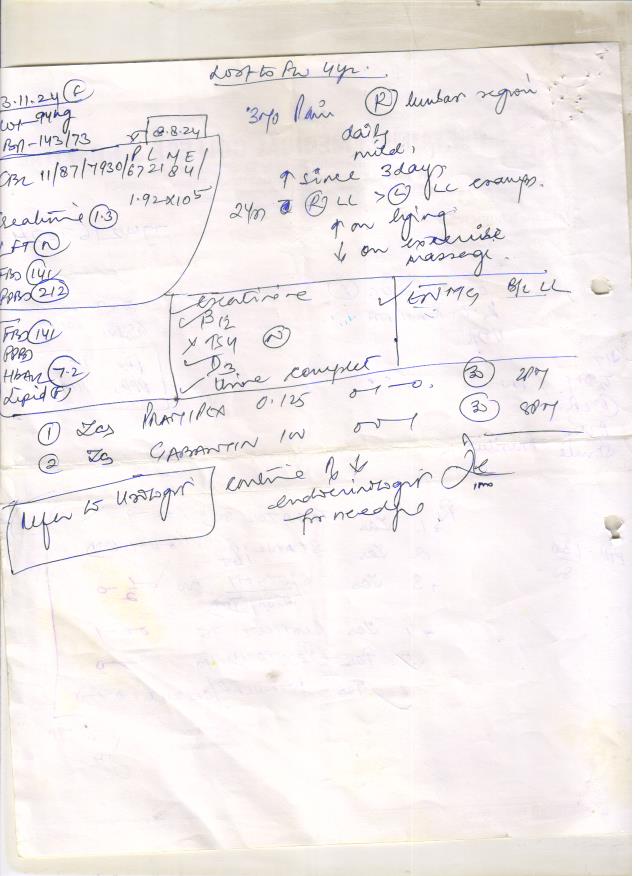 Lost to FU 4yr.
3.11.24 F
Wt- 94kg
BP-143/73
8.8.24
P L M E
CBC 11/87/7930/67 21 8 4/
1.92x10⁵
creatinine 1.3
LFT N
FBS 141
PPBS 212
3mo Pain R lumbar region
daily
mild
↑ since 3days
2yr R LL > L LL cramps.
↑ on lying
↓ on exercise
massage.
FBS 141
PPBS
HbA1c 7.2
Lipid
creatinine
B12
TSH N
D3
Urine complet
ENMG B/L LL
1 Tab PRAMIPEX 0.125 0-1-0. 30 2PM
2 Tab GABANTIN 100 0-0-1 30 8PM
refer to Urologist
continue
endocrinologist
for needful